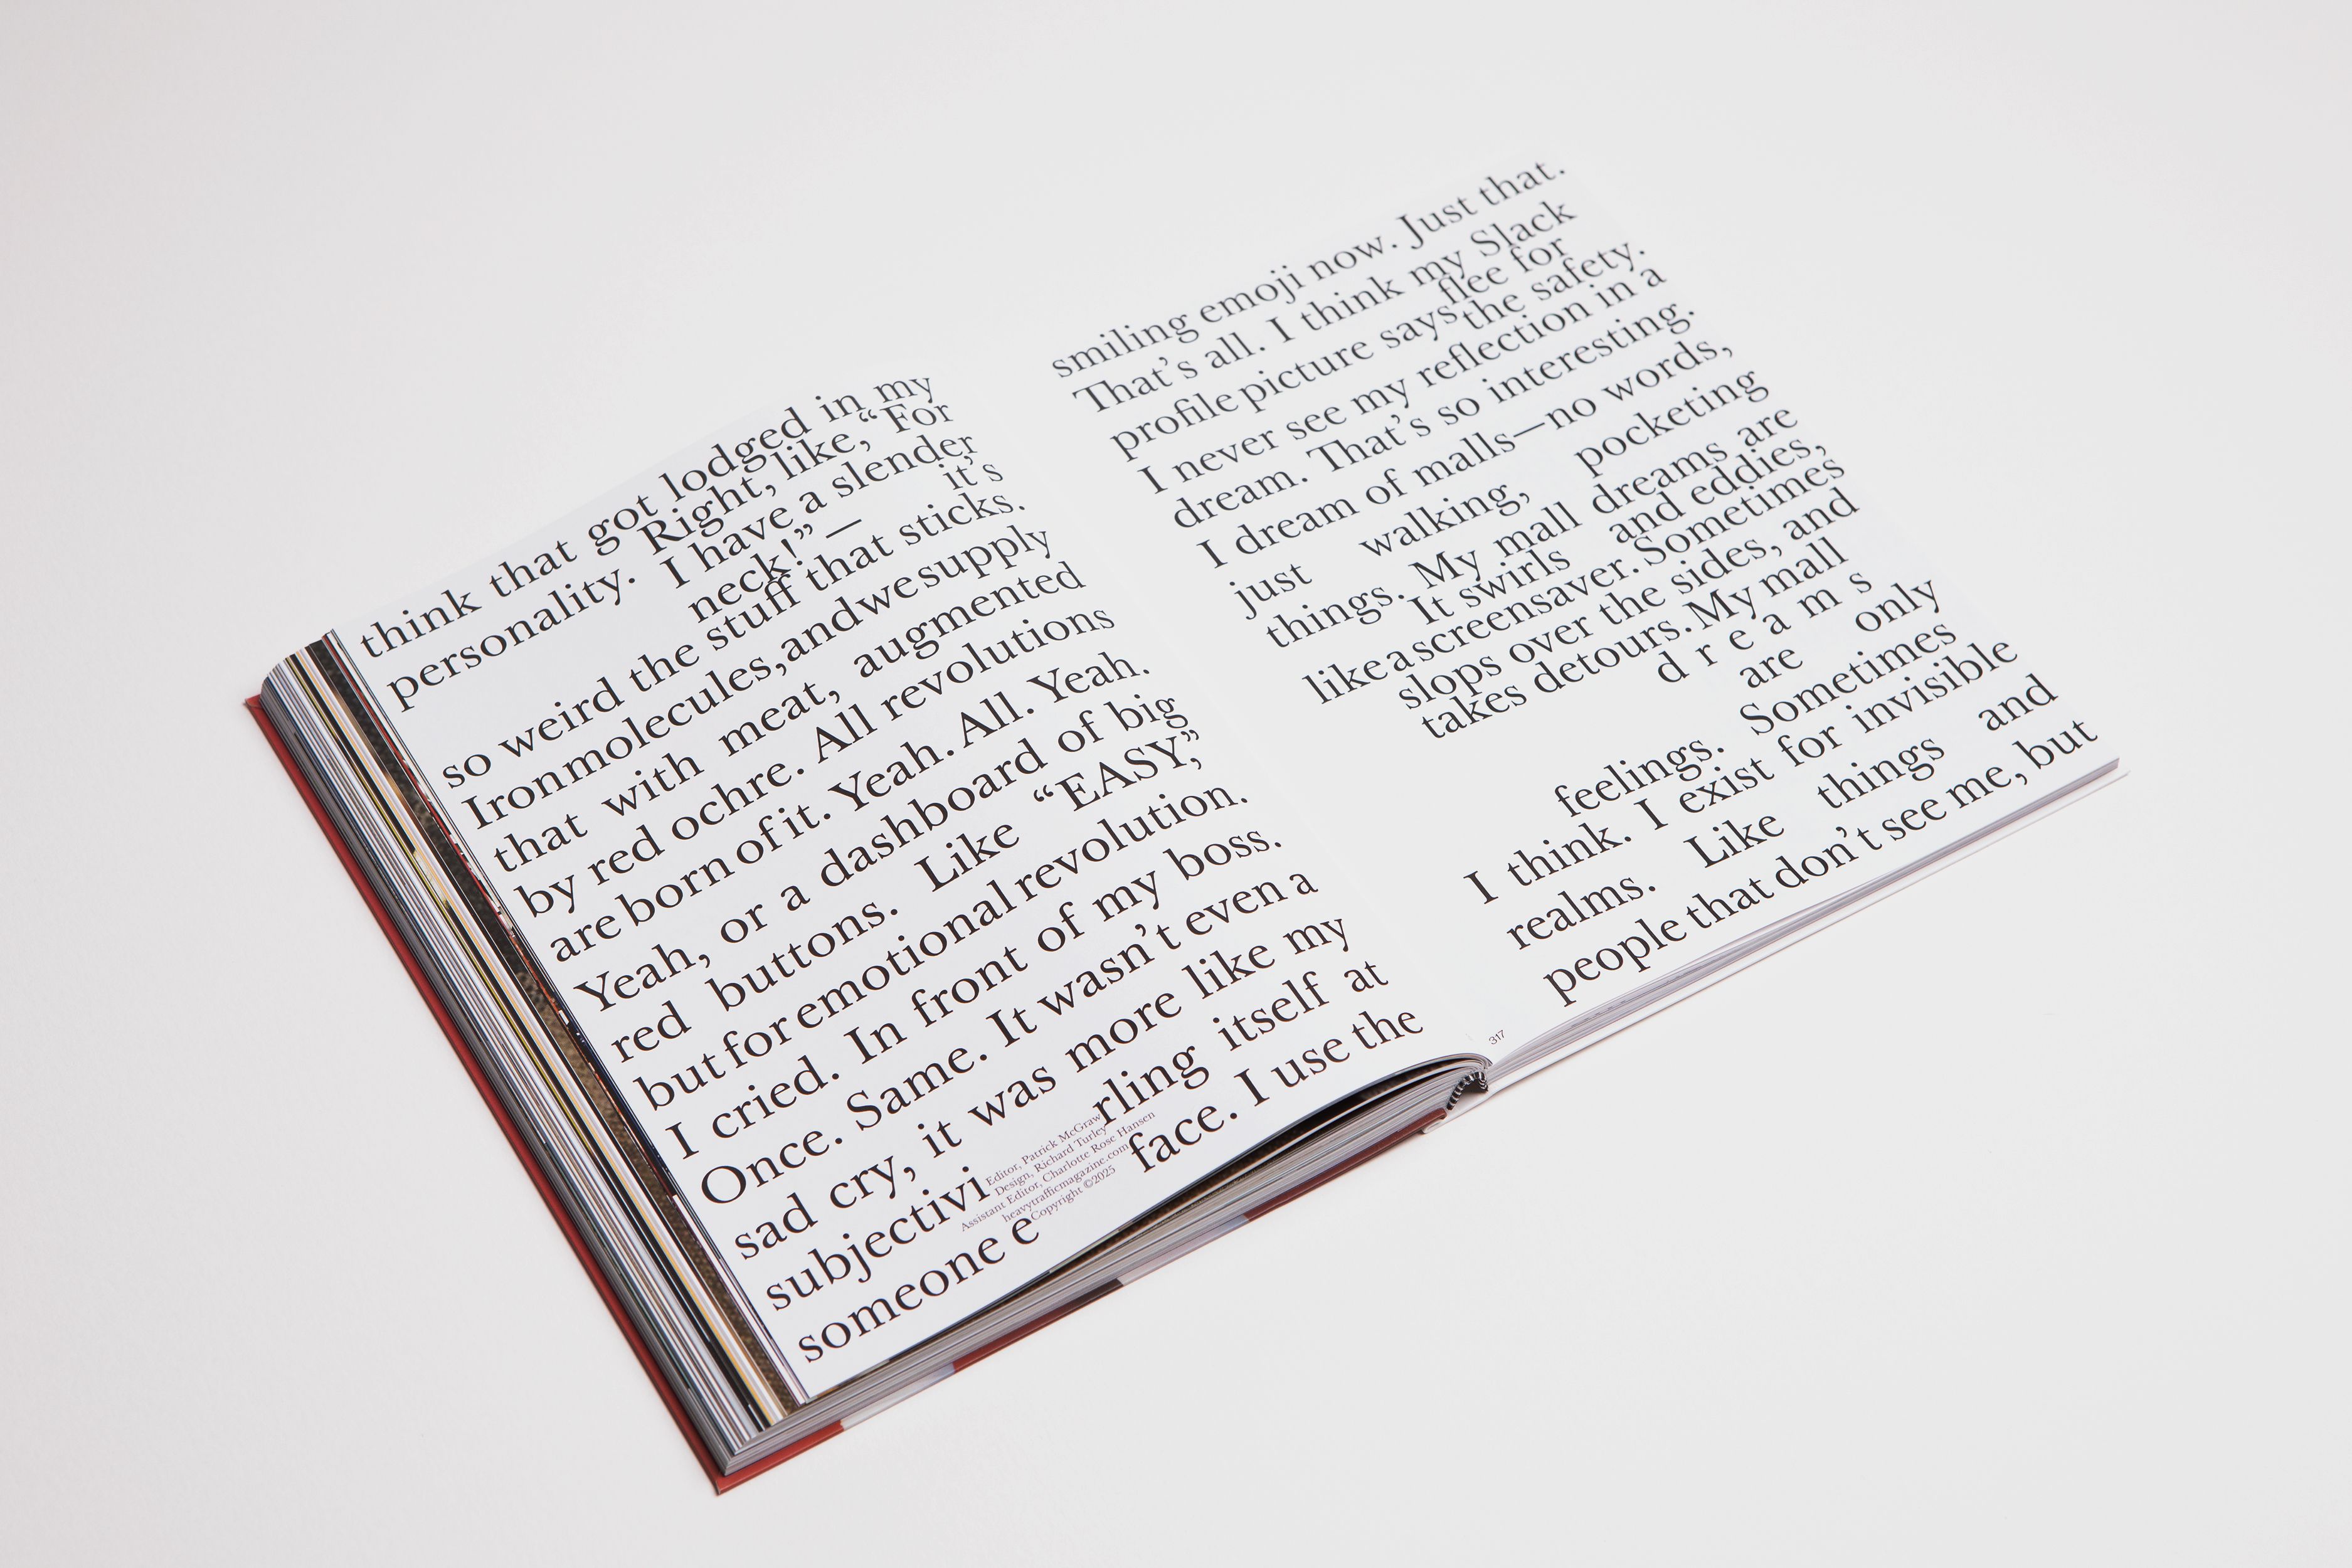 think that got lodged in my
personality. Right, like, “For
I have a slender
neck!” — it’s
so weird the stuff that sticks.
Iron molecules, and we supply
that with meat, augmented
by red ochre. All revolutions
are born of it. Yeah. All. Yeah.
Yeah, or a dashboard of big
red buttons. Like “EASY,”
but for emotional revolution.
I cried. In front of my boss.
Once. Same. It wasn’t even a
sad cry, it was more like my
subjectivi rling itself at
someone e face. I use the
Editor, Patrick McGraw
Design, Richard Turley
Assistant Editor, Charlotte Rose Hansen
heavytrafficmagazine.com
Copyright ©2025
smiling emoji now. Just that.
That’s all. I think my Slack
profile picture says flee for
the safety.
I never see my reflection in a
dream. That’s so interesting.
I dream of malls—no words,
just walking, pocketing
things. My mall dreams are
It swirls and eddies,
like a screensaver. Sometimes
slops over the sides, and
takes detours. My mall
dreams
are only
feelings. Sometimes
I think. I exist for invisible
realms. Like things and
people that don’t see me, but
317